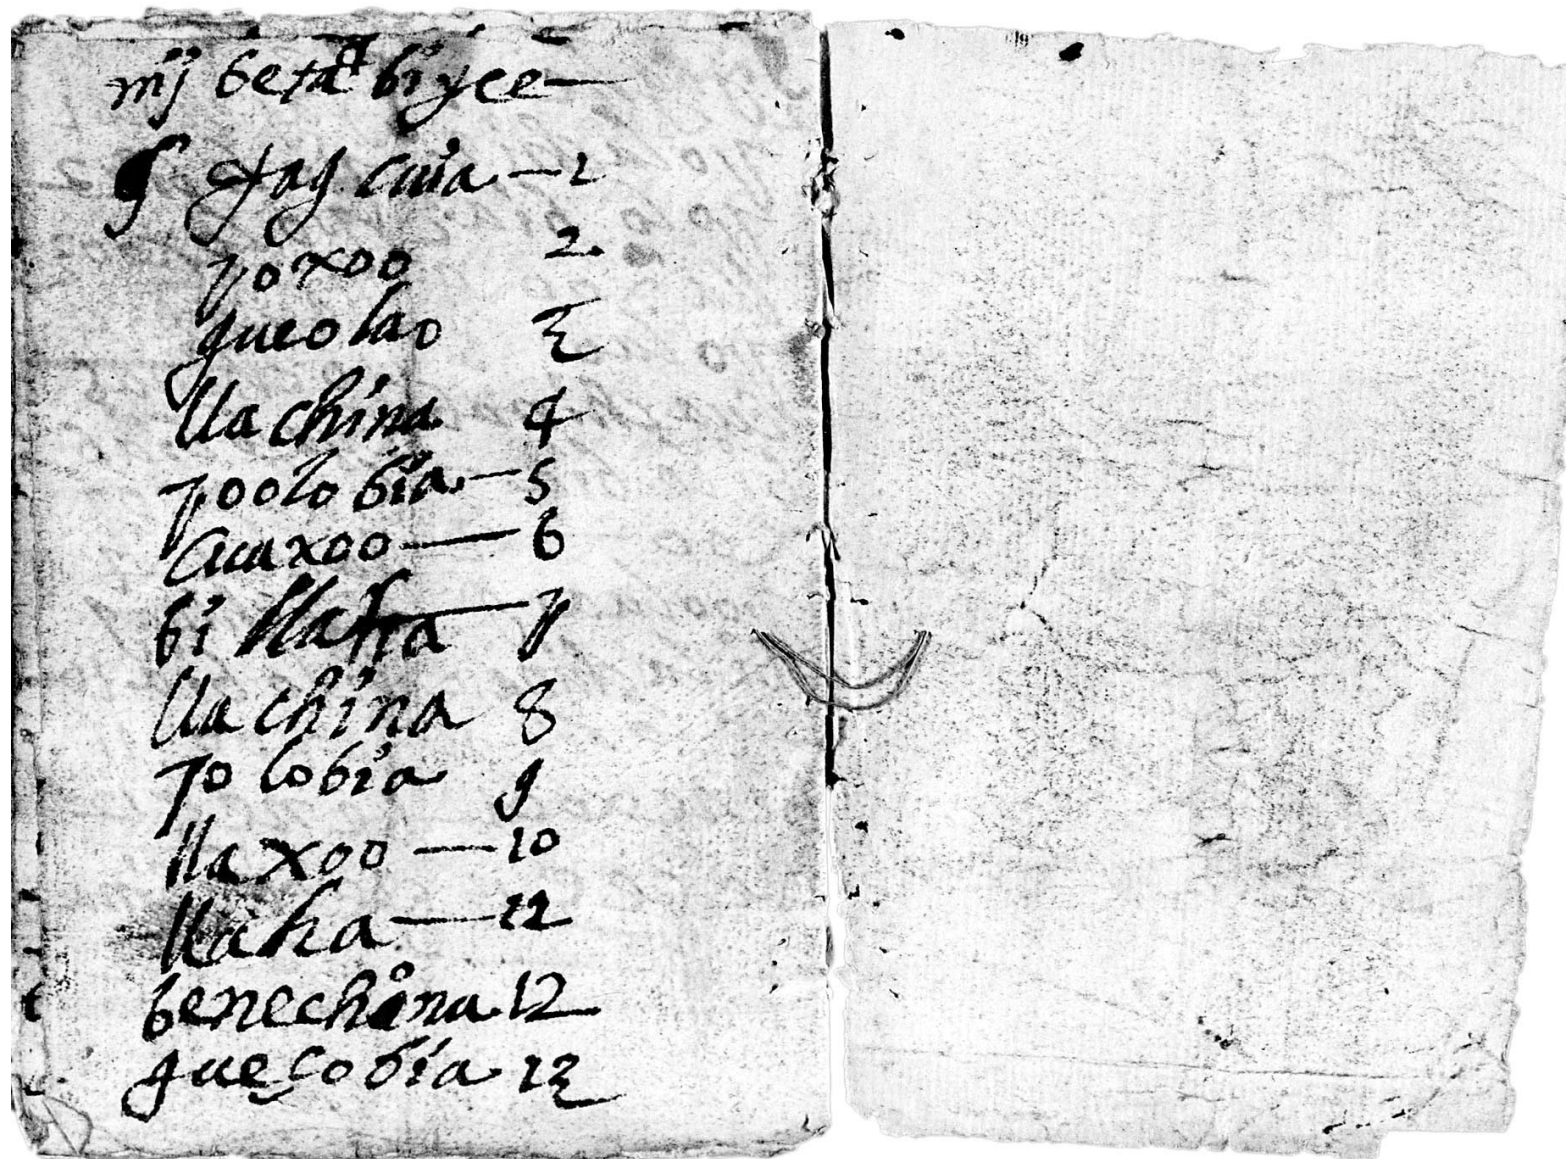 mij beta biyce
yag cuia 1
yoxoo 2
gueolao 3
llachina 4
yoolobia 5
Cuaxoo 6
bi llaha 7
llachina 8
yolobia 9
llaxoo 10
llaha 11
benechina 12
gueçobia 13